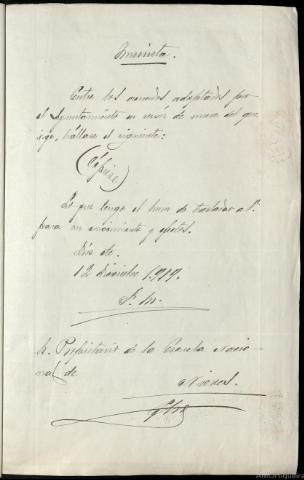 Minuta.
Entre los acuerdos adoptados por
el Ayuntamiento en sesión de nueve del que
rige, hállase el siguiente:
(Cópiese)
Lo que tengo el honor de trasladar a V.
para su conocimiento y efectos.
Dios &c.
12 diciembre 1,919.
P. M.
S. Propietario de la Escuela Nacio-
nal de